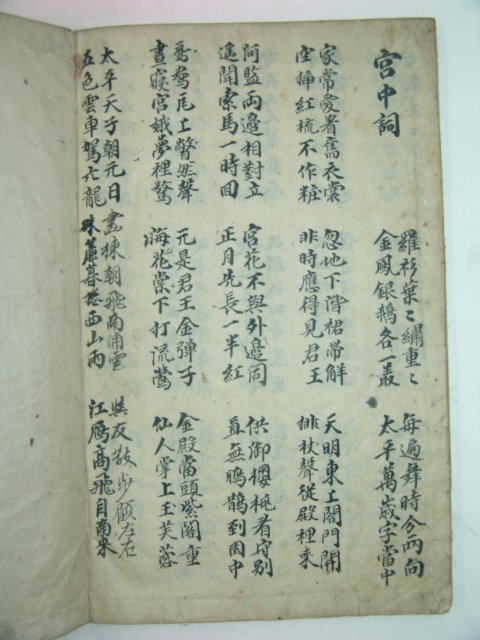 宮中詞
羅衫葉〻繡重〻
金鳳銀鵝各一叢
每遍舞時分兩向
太平萬歲字當中
家常愛着舊衣裳
空揷紅梳不作粧
忽地下階裙帶解
非時應得見君王
天明東上閤門開
排杖聲從殿裡來
阿監兩邊相對立
遙聞索馬一時回
宮花不與外邊同
正月先長一半紅
供御櫻桃看守別
直無鴉鵲到園中
鴛鴦瓦上瞥然聲
晝寢宮娥夢裡驚
元是君王金彈子
海花棠下打流鶯
金殿當頭紫閣重
仙人掌上玉芙蓉
太平天子朝元日
五色雲車駕六龍
畫棟朝飛南浦雲
珠簾暮捲西山雨
與友散步顧左右
江鴈高飛自南來